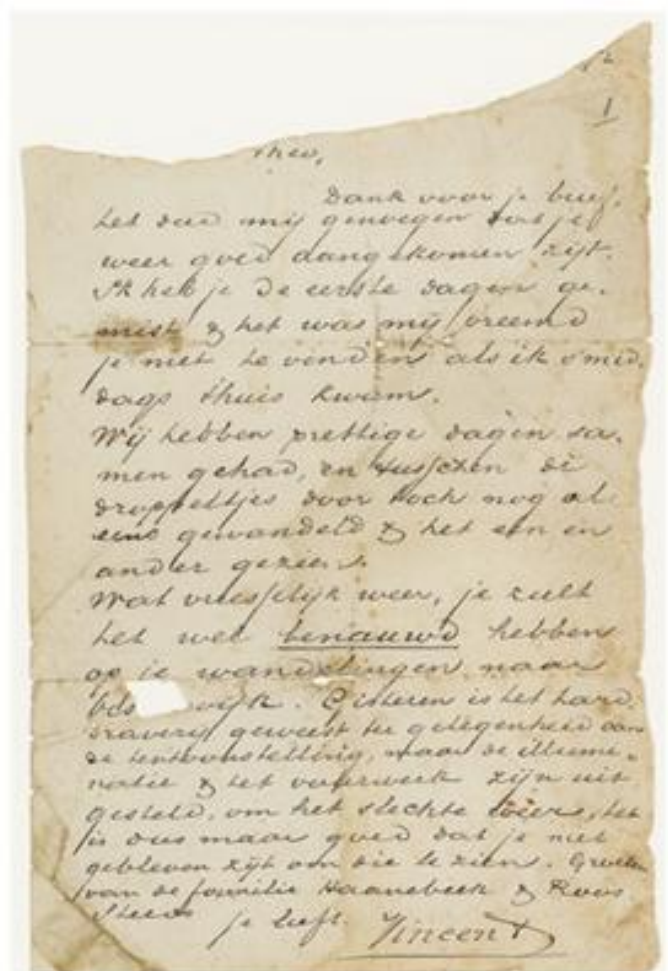 1
Theo,
Dank voor je brief,
het deed mij genoegen dat je
weer goed aangekomen zijt.
Ik heb je de eerste dagen ge-
mist & het was mij vreemd
je niet te vinden als ik s'mid-
dags thuis kwam.
Wij hebben prettige dagen sa-
men gehad, en tusschen de
droppeltjes door toch nog al
eens gewandeld & het een en
ander gezien.
Wat vreesselijk weer, je zult
het wel benauwd hebben
op je wandelingen naar
wijk. Gisteren is het hard-
draverij geweest ter gelegenheid van
de tentoonstelling, maar de illumi-
natie & het vuurwerk zijn uit-
gesteld, om het slechte weer, het
is dus maar goed dat je niet
gebleven zijt om die te zien. Groeten
van de familie Haanebeek & Roos
je liefh. Vincent